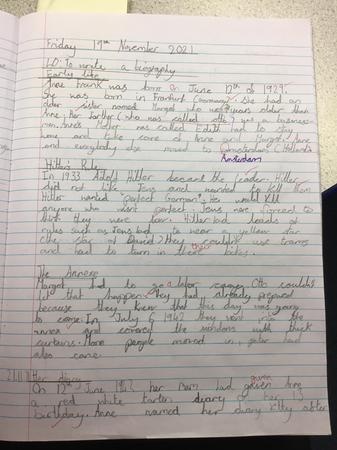 Friday 19th November 2021
LO: To write a biography
Early life
Anne Frank was born on June 12th of 1929.
She was born in Frankfurt (Germany). She had an
older sister named Margot who was years older than
Anne. Her father (who was called otto) was a business
man. Anne's Mother was called Edith had to stay
home and take care of Anne and Margot. Anne
and everybody else moved to Amsterdam (Holland).
Amsterdam
Hitler's Rule
In 1933 Adolf Hitler became the leader. Hitler
did not like Jews and wanted to kill them
Hitler wanted "perfect German". He would kill
anyone who wasn't perfect. Jews were forced to
think they were low. Hitler had loads of
rules such as Jews had to wear a yellow star
(the star of David), they couldn't use trams
and had to turn in their bikes.
The Annexe
Margot had to go a labor camp. Otto couldn't
let that happen, they had already prepared
because they knew that this day was going
to come. In July 6, 1942 they went into the
annex and covered the windows with thick
curtains. More people moved in, peter had
also came.
21.11.21 Her diary
given
On 12th June 1942 her mum had given Anne
a red white tartan diary for her 13
birthday. Anne named her diary kitty after